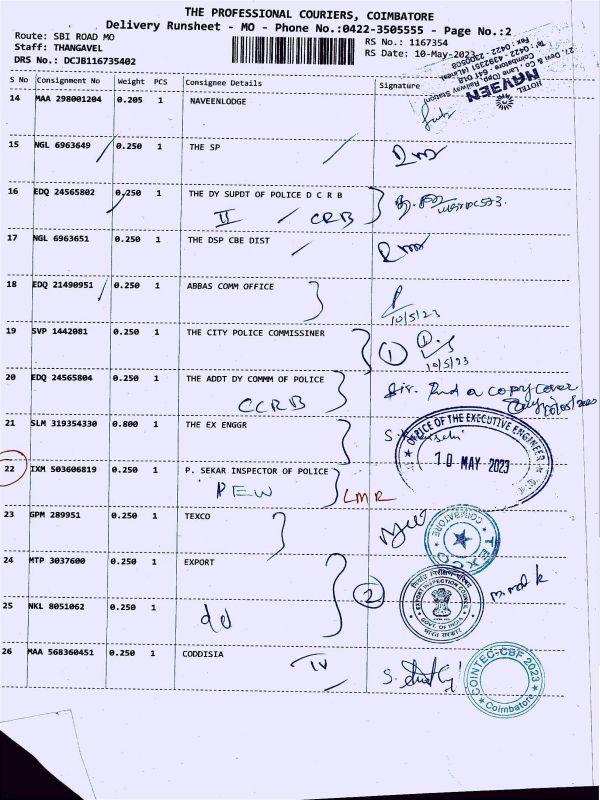 THE PROFESSIONAL COURIERS, COIMBATORE
Delivery Runsheet - MO - Phone No.:0422-3505555 - Page No.:2
Route: SBI ROAD MO
RS No.: 1167354
Staff: THANGAVEL
RS Date: 10-May-2023
DRS No.: DCJB116735402
HOTEL NAVEEN
S No Consignment No Weight PCS Consignee Details Signature
14 MAA 298001204 0.205 1 NAVEENLODGE
15 NGL 6963649 0.250 1 THE SP
16 EDQ 24565802 0.250 1 THE DY SUPDT OF POLICE D C R B
II / CRB
17 NGL 6963651 0.250 1 THE DSP CBE DIST
18 EDQ 21490951 0.250 1 ABBAS COMM OFFICE
10/5/23
19 SVP 1442081 0.250 1 THE CITY POLICE COMMISSINER
1
10/5/23
20 EDQ 24565804 0.250 1 THE ADDT DY COMMM OF POLICE
CCRB
21 SLM 319354330 0.800 1 THE EX ENGGR
OFFICE OF THE EXECUTIVE ENGINEER
10 MAY 2023
22 IXM 503606819 0.250 1 P. SEKAR INSPECTOR OF POLICE
PEW LMR
23 GPM 289951 0.250 1 TEXCO
TEXCO COIMBATORE
24 MTP 3037600 0.250 1 EXPORT
2
EXPORT INSPECTION COUNCIL
GOVT. OF INDIA
भारत सरकार
25 NKL 8051062 0.250 1
do
26 MAA 568360451 0.250 1 CODDISIA
IV
COINTEC-CBF 2023
Coimbatore